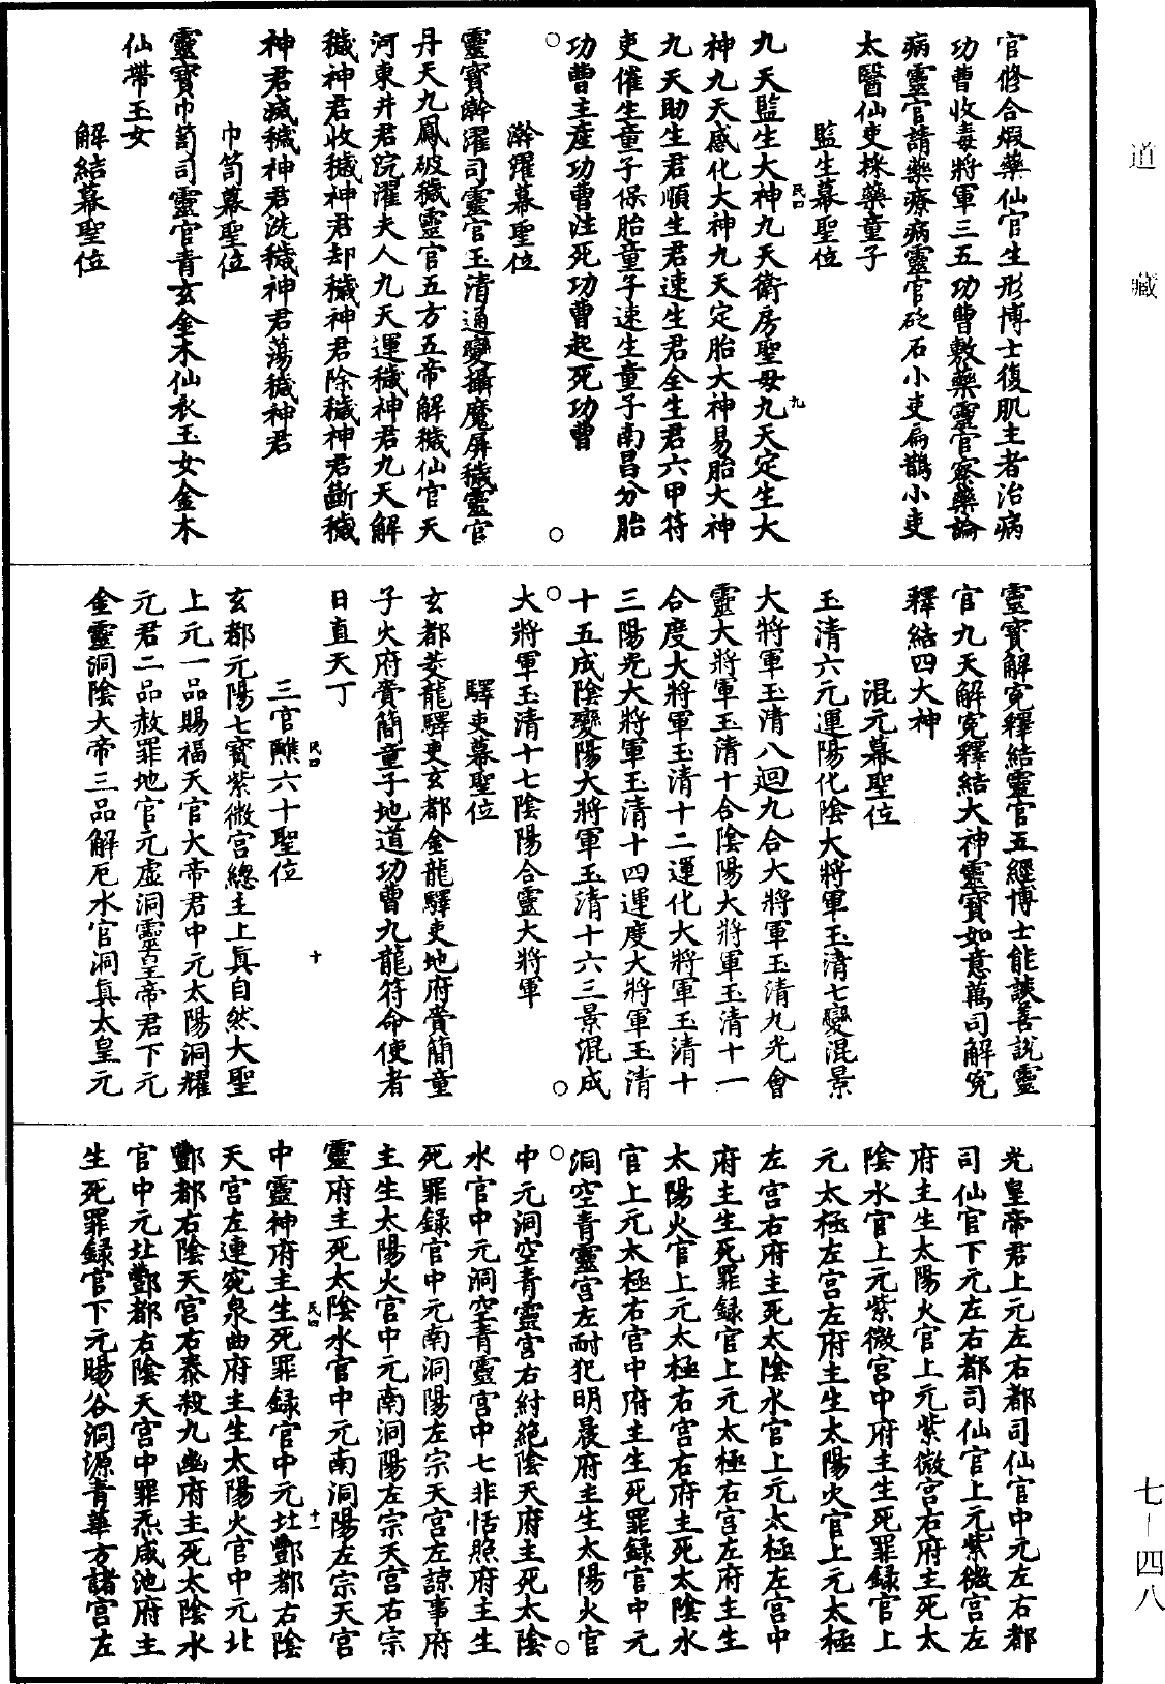 道藏
七—四八
官修合煆藥仙官生形博士復肌主者治病
功曹收毒將軍三五功曹敷藥靈官察藥論
病靈官請藥療病靈官砭石小吏扁鵲小吏
太醫仙吏採藥童子
監生幕聖位
九天監生大神九天衛房聖母九天定生大
神九天感化大神九天定胎大神易胎大神
九天助生君順生君速生君全生君六甲符
吏催生童子保胎童子速生童子南昌分胎
功曹主產功曹注死功曹起死功曹
澣濯幕聖位
靈寶澣濯司靈官玉清通變攝魔屏穢靈官
丹天九鳳破穢靈官五方五帝解穢仙官天
河東井君浣濯夫人九天運穢神君九天解
穢神君收穢神君却穢神君除穢神君斷穢
神君滅穢神君洗穢神君蕩穢神君
巾笥幕聖位
靈寶巾笥司靈官青玄金木仙衣玉女金木
仙帶玉女
解結幕聖位
靈寶解寃釋結靈官五經博士能談善說靈
官九天解寃釋結大神靈寶如意萬司解寃
釋結四大神
混元幕聖位
玉清六元運陽化陰大將軍玉清七變混景
大將軍玉清八迴九合大將軍玉清九光會
靈大將軍玉清十合陰陽大將軍玉清十一
合度大將軍玉清十二運化大將軍玉清十
三陽光大將軍玉清十四運度大將軍玉清
十五成陰變陽大將軍玉清十六三景混成
大將軍玉清十七陰陽合靈大將軍
驛吏幕聖位
玄都茭龍驛吏玄都金龍驛吏地府賫簡童
子火府賫簡童子地道功曹九龍符命使者
日直天丁
三官醮六十聖位
玄都元陽七寶紫微宫總主上眞自然大聖
上元一品賜福天官大帝君中元太陽洞耀
元君二品赦罪地官元虛洞靈皇帝君下元
金靈洞陰大帝三品解厄水官洞眞太皇元
光皇帝君上元左右都司仙官中元左右都
司仙官下元左右都司仙官上元紫微宫左
府主生太陽火官上元紫微宫右府主死太
陰水官上元紫微宫中府主生死罪録官上
元太極左宫左府主生太陽火官上元太極
左宫右府主死太陰水官上元太極左宫中
府主生死罪録官上元太極右宫左府主生
太陽火官上元太極右宫右府主死太陰水
官上元太極右宫中府主生死罪録官中元
洞空青靈宫左耐犯明晨府主生太陽火官
中元洞空青靈宫右紂絶陰天府主死太陰
水官中元洞空青靈宫中七非恬照府主生
死罪録官中元南洞陽左宗天宫左諒事府
主生太陽火官中元南洞陽左宗天宫右宗
靈府主死太陰水官中元南洞陽左宗天宫
中靈神府主生死罪録官中元北酆都右陰
天宫左連宛泉曲府主生太陽火官中元北
酆都右陰天宫右泰殺九幽府主死太陰水
官中元北酆都右陰天宫中罪炁咸池府主
生死罪録官下元暘谷洞源青華方諸宫左